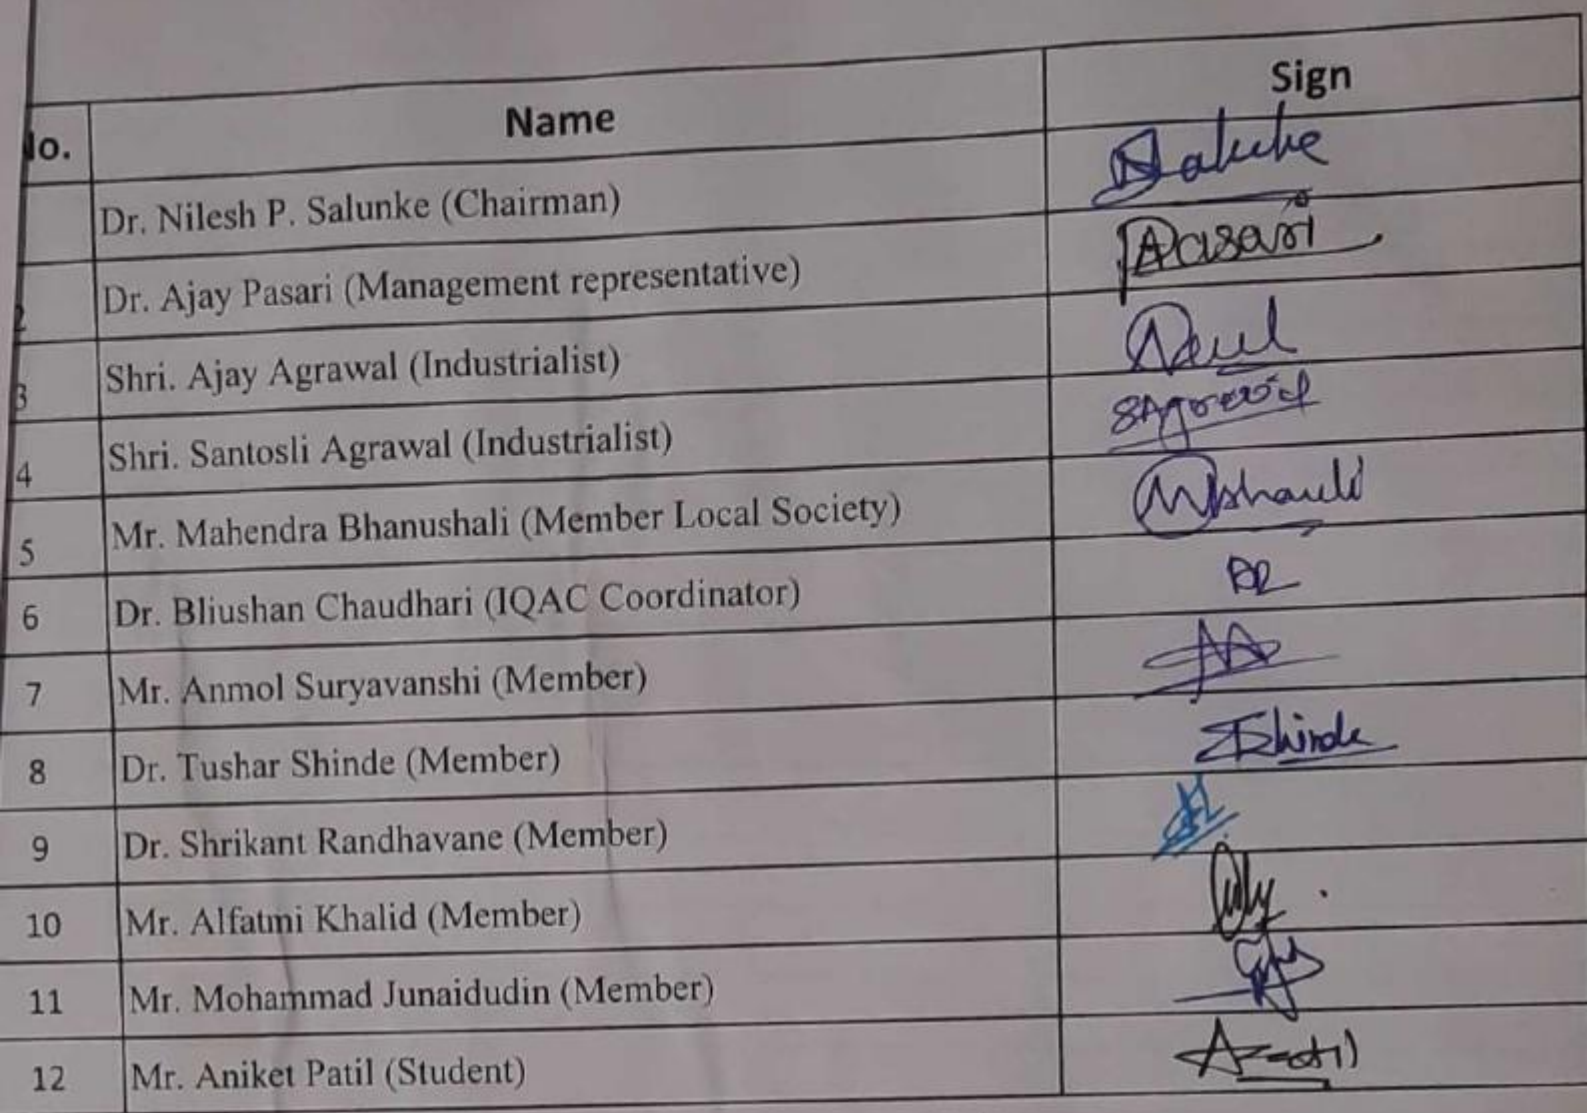 No. Name Sign
Dr. Nilesh P. Salunke (Chairman) Salunke
2 Dr. Ajay Pasari (Management representative) Pasari
3 Shri. Ajay Agrawal (Industrialist)
4 Shri. Santosli Agrawal (Industrialist) SAgrawal
5 Mr. Mahendra Bhanushali (Member Local Society)
6 Dr. Bliushan Chaudhari (IQAC Coordinator)
7 Mr. Anmol Suryavanshi (Member)
8 Dr. Tushar Shinde (Member) TShinde
9 Dr. Shrikant Randhavane (Member)
10 Mr. Alfatmi Khalid (Member)
11 Mr. Mohammad Junaidudin (Member)
12 Mr. Aniket Patil (Student)